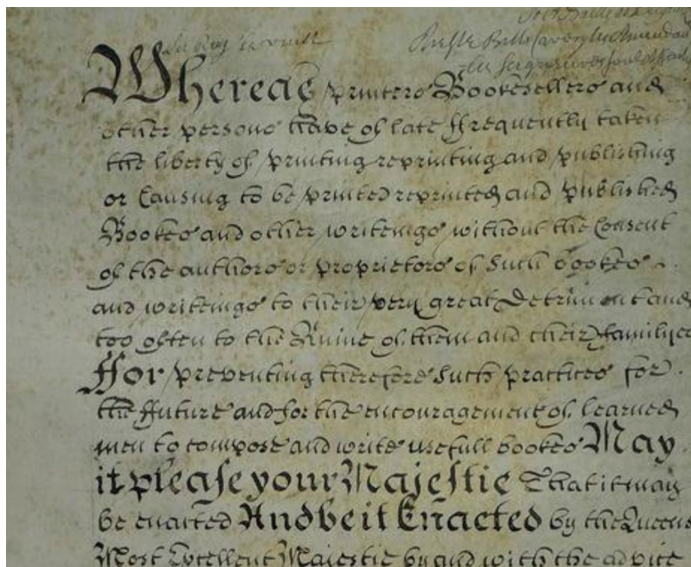 Whereas printers Booksellers and
other persons have of late ffrequently taken
the liberty of printing reprinting and publishing
or Causing to be printed reprinted and published
Bookes and other writeings without the Consent
of the authors or proprietors of Such bookes
and writeings to their very great Detriment and
too often to the Ruine of them and their familyes
ffor preventing therefore Such practices for
the ffuture and for the encouragement of learned
men to compose and write usefull bookes May
it please your Majestie That it may
be enacted And be it Enacted by the Queens
Most Excellent Majestie by and with the advice